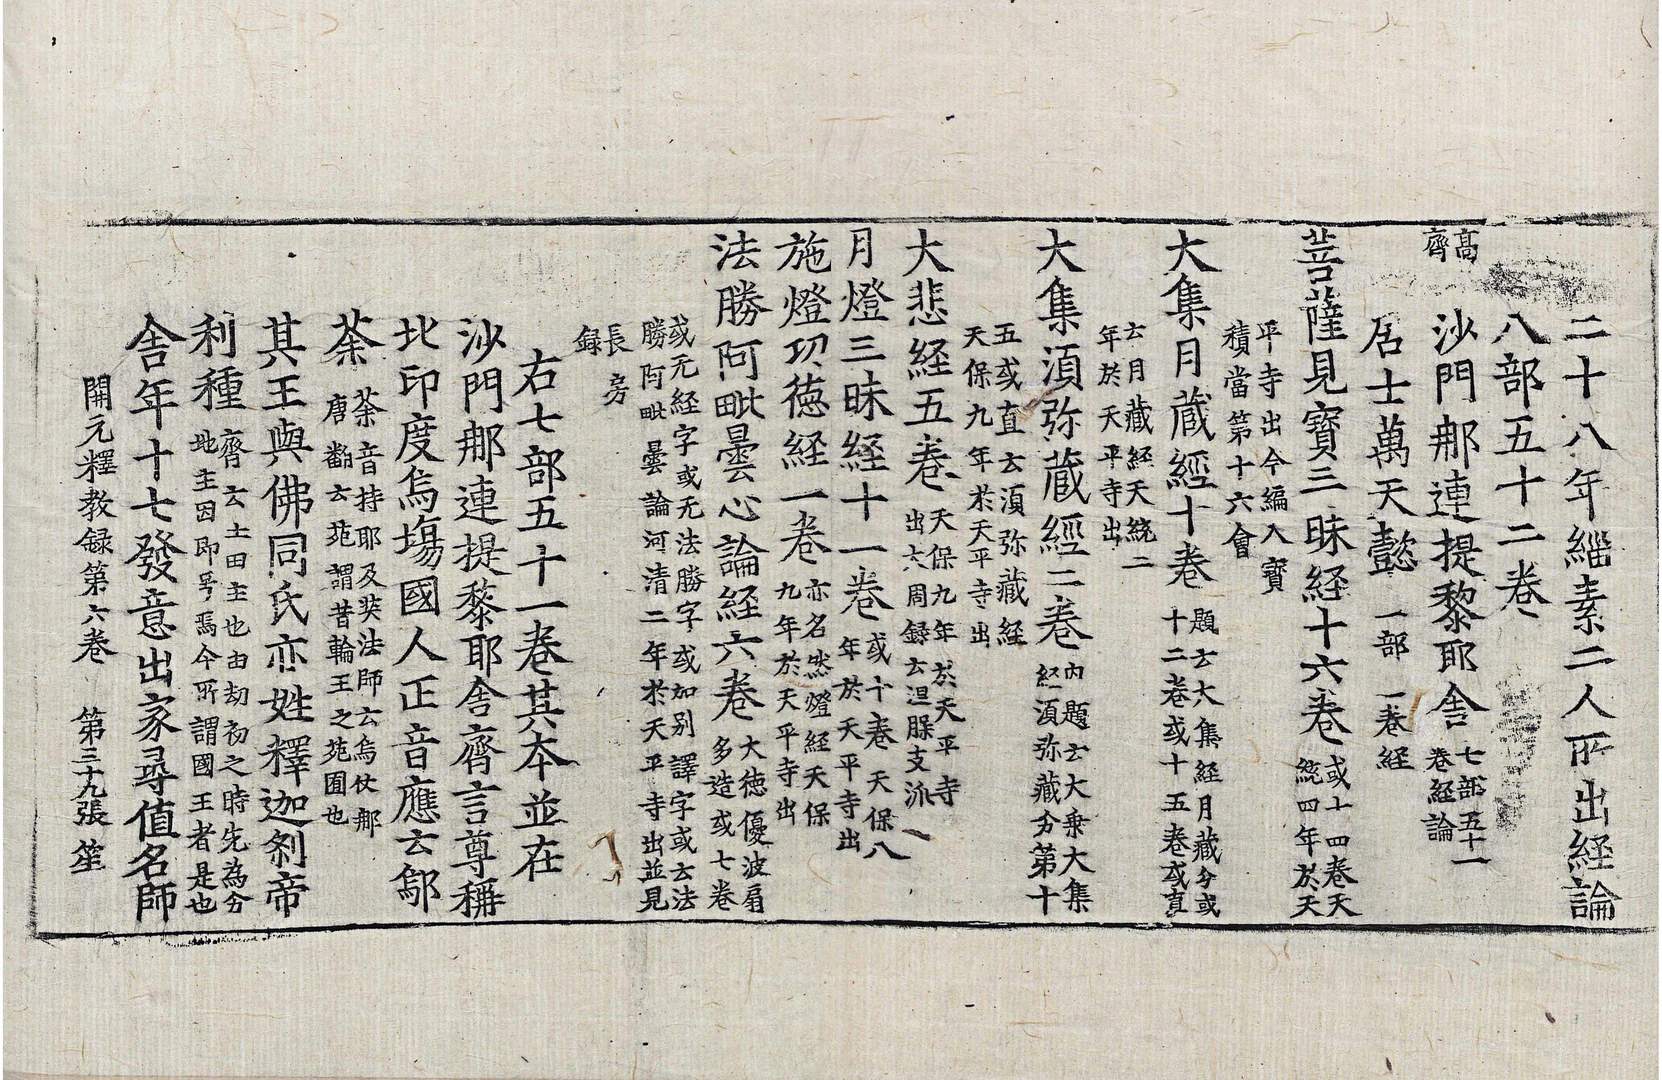 二十八年緇素二人所出経論
八部五十二卷
高齊
沙門那連提黎耶舍 七部五十一卷経論
居士萬天懿 一部一卷経
菩薩見寶三昧経十六卷 或十四卷天統四年於天
平寺出今編入寶積當第十六會
大集月蔵經十卷 題云大集経月藏分或十二卷或十五卷或直
云月藏経天統二年於天平寺出
大集湏弥蔵經二卷 內題云大乗大集経湏弥藏分第十
五或直云湏弥藏経天保九年於天平寺出
大悲経五卷 天保九年於天平寺出六周録云沮支派一
月燈三昧経十一卷 或十卷天保八年於天平寺出
施燈功徳経一卷 亦名然燈経天保九年於天平寺出
法勝阿毗曇心論経六卷 大徳優波扇多造或七卷
或无経字或无法勝字或如别譯字或云法勝阿毗曇論河清二年於天平寺出並見
長房録
右七部五十一卷其本並在
沙門那連提黎耶舍齊言尊稱
北印度烏場國人正音應云鄔
荼 荼音持耶反奘法師云烏仗那唐翻云苑謂昔輪王之苑囿也
其王與佛同氏亦姓釋迦刹帝
利種 齊云土田主也由劫初之時先為分地主因即号焉今所謂國王者是也
舍年十七發意出家尋值名師
開元釋教録第六卷 第三十九張 笙